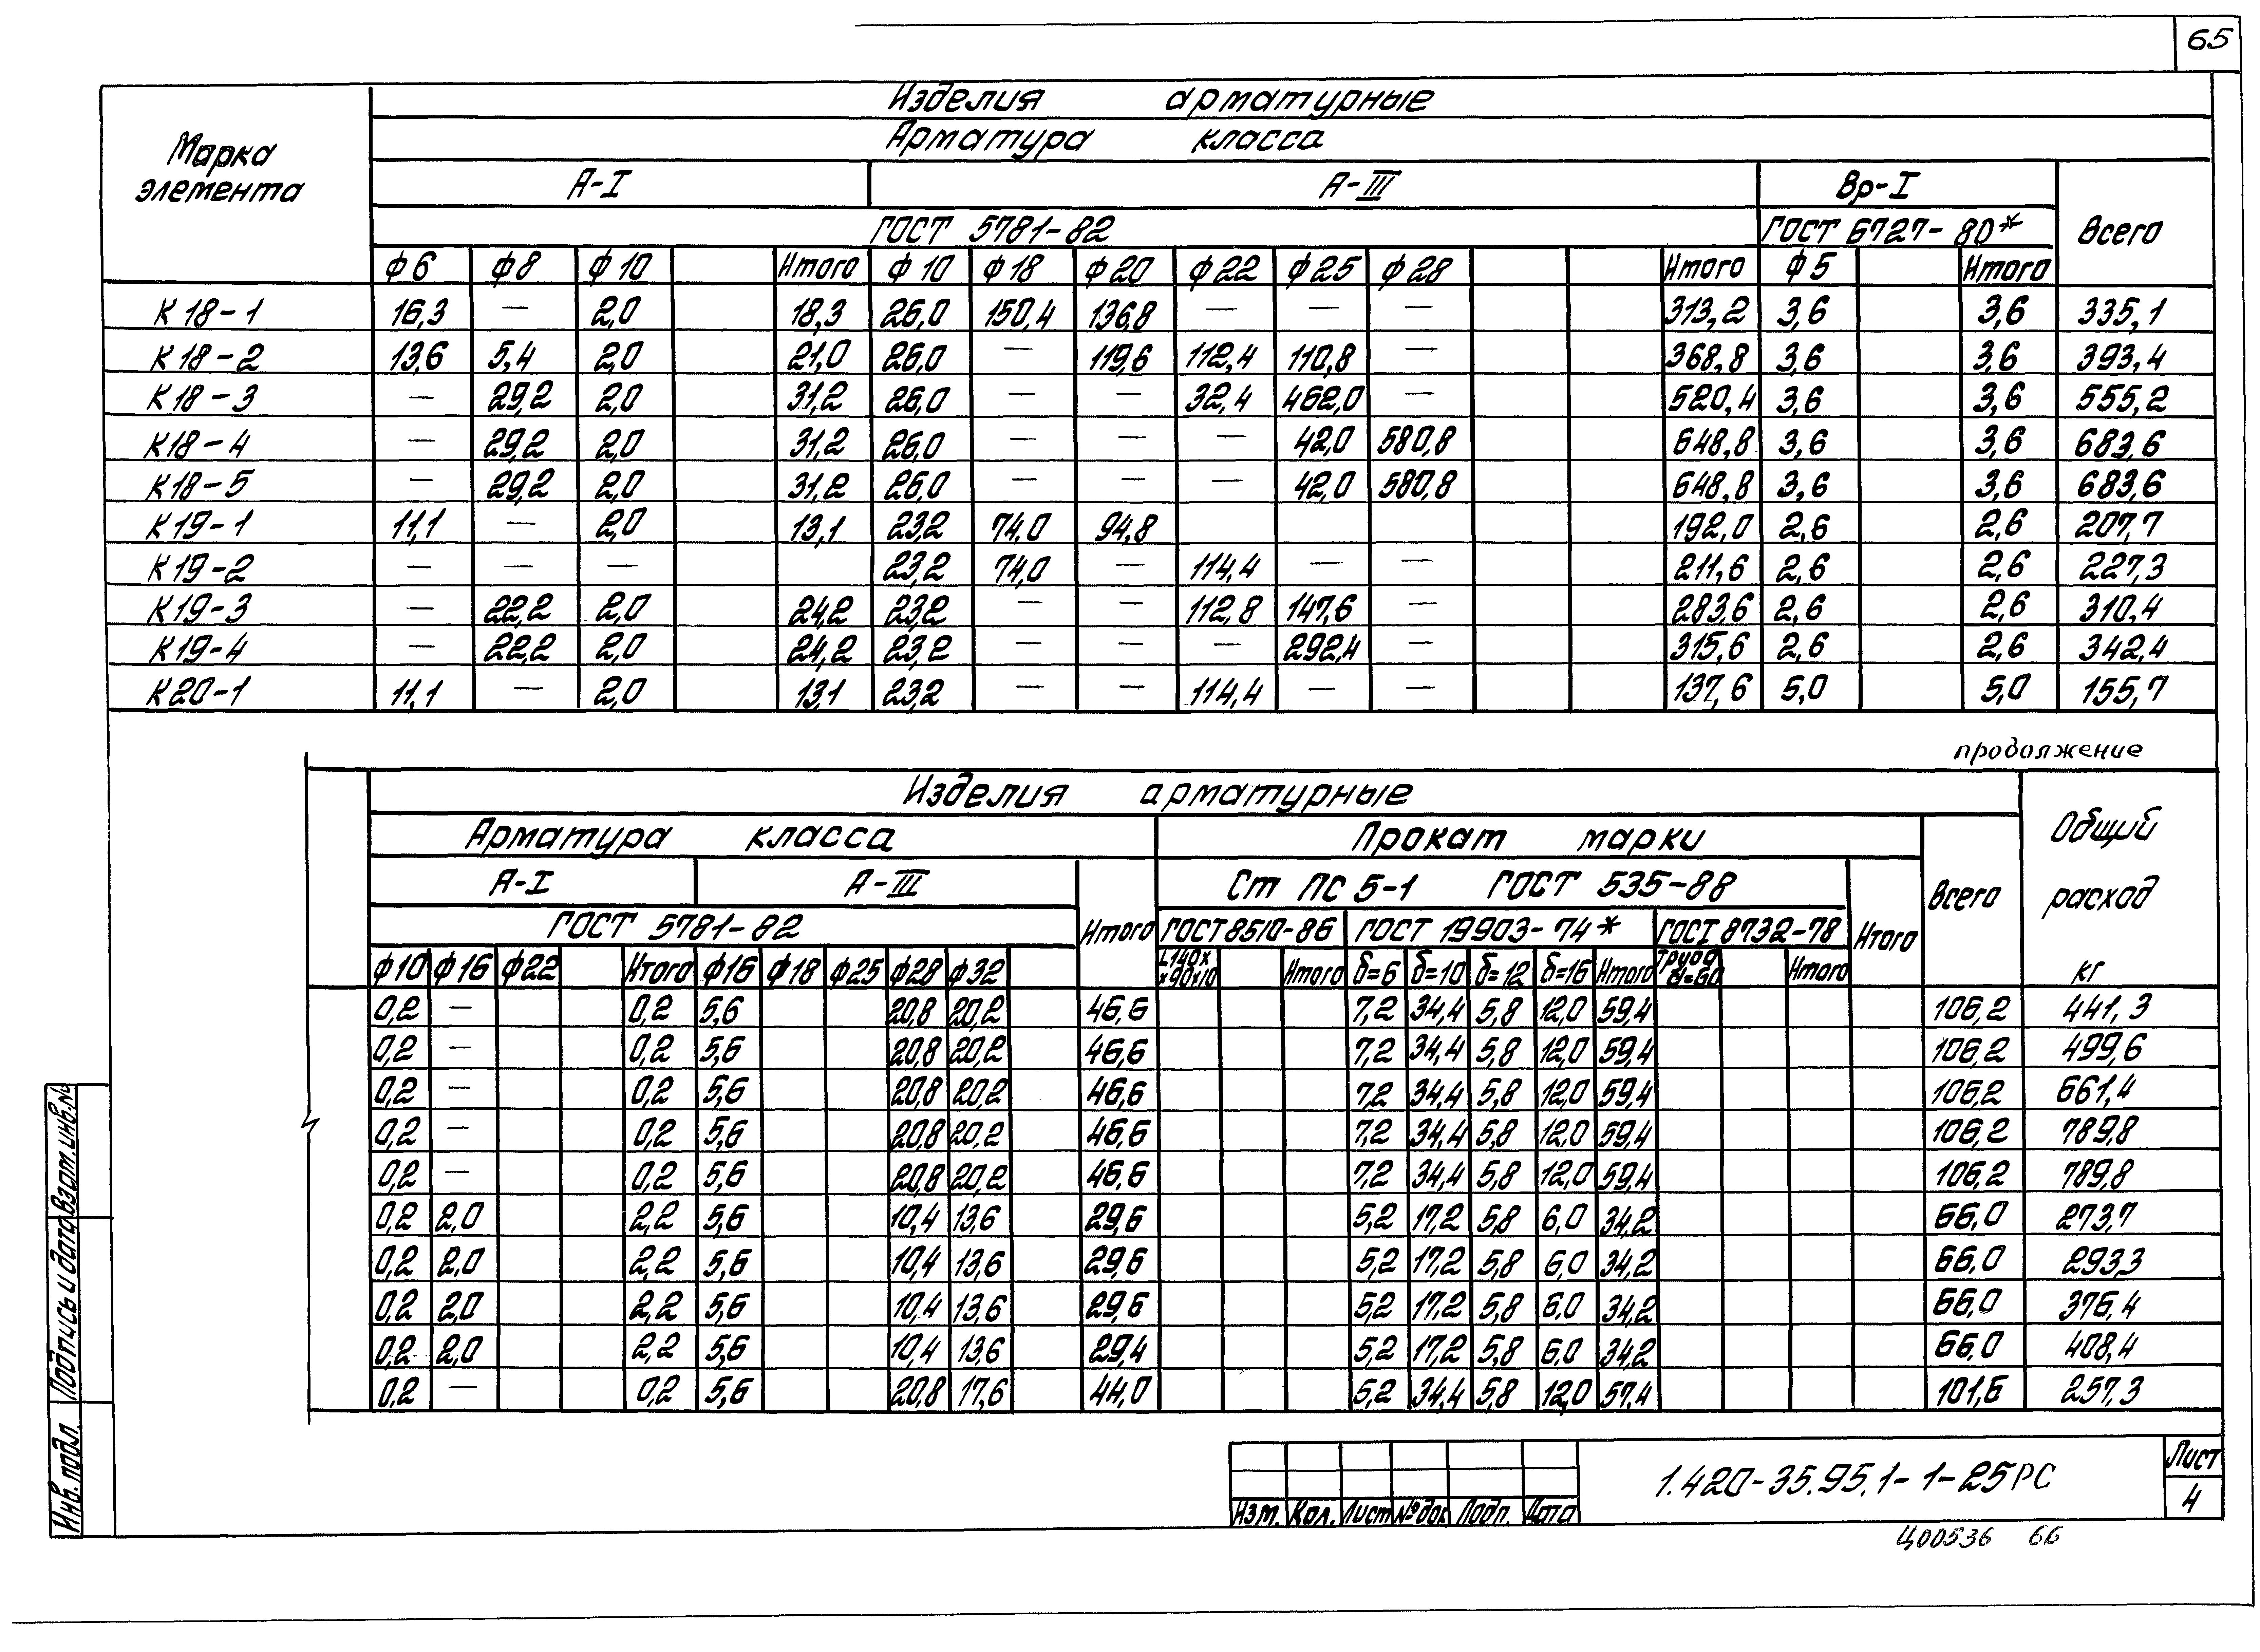 65
Изделия арматурные
Арматура класса
Марка элемента
А-I А-III Вр-I Всего
ГОСТ 5781-82 ГОСТ 6727-80*
ф6 ф8 ф10 Итого ф10 ф18 ф20 ф22 ф25 ф28 Итого ф5 Итого
К18-1 16,3 — 2,0 18,3 26,0 150,4 136,8 — — — 313,2 3,6 3,6 335,1
К18-2 13,6 5,4 2,0 21,0 26,0 — 119,6 112,4 110,8 — 368,8 3,6 3,6 393,4
К18-3 — 29,2 2,0 31,2 26,0 — — 32,4 462,0 — 520,4 3,6 3,6 555,2
К18-4 — 29,2 2,0 31,2 26,0 — — — 42,0 580,8 648,8 3,6 3,6 683,6
К18-5 — 29,2 2,0 31,2 26,0 — — — 42,0 580,8 648,8 3,6 3,6 683,6
К19-1 11,1 — 2,0 13,1 23,2 74,0 94,8 192,0 2,6 2,6 207,7
К19-2 — — — 23,2 74,0 — 114,4 — — 211,6 2,6 2,6 227,3
К19-3 — 22,2 2,0 24,2 23,2 — — 112,8 147,6 — 283,6 2,6 2,6 310,4
К19-4 — 22,2 2,0 24,2 23,2 — — — 292,4 — 315,6 2,6 2,6 342,4
К20-1 11,1 — 2,0 13,1 23,2 — — 114,4 — — 137,6 5,0 5,0 155,7
продолжение
Изделия арматурные Общий расход кг
Арматура класса Прокат марки Всего
А-I А-III Итого Ст ПС 5-1 ГОСТ 535-88 Итого
ГОСТ 5781-82 ГОСТ 8510-86 ГОСТ 19903-74* ГОСТ 8732-78
ф10 ф16 ф22 Итого ф16 ф18 ф25 ф28 ф32 L140x x90x10 Итого δ=6 δ=10 δ=12 δ=16 Итого Труба d=60 Итого
0,2 — 0,2 5,6 20,8 20,2 46,6 7,2 34,4 5,8 12,0 59,4 106,2 441,3
0,2 — 0,2 5,6 20,8 20,2 46,6 7,2 34,4 5,8 12,0 59,4 106,2 499,6
0,2 — 0,2 5,6 20,8 20,2 46,6 7,2 34,4 5,8 12,0 59,4 106,2 661,4
0,2 — 0,2 5,6 20,8 20,2 46,6 7,2 34,4 5,8 12,0 59,4 106,2 789,8
0,2 — 0,2 5,6 20,8 20,2 46,6 7,2 34,4 5,8 12,0 59,4 106,2 789,8
0,2 2,0 2,2 5,6 10,4 13,6 29,6 5,2 17,2 5,8 6,0 34,2 66,0 273,7
0,2 2,0 2,2 5,6 10,4 13,6 29,6 5,2 17,2 5,8 6,0 34,2 66,0 293,3
0,2 2,0 2,2 5,6 10,4 13,6 29,6 5,2 17,2 5,8 6,0 34,2 66,0 376,4
0,2 2,0 2,2 5,6 10,4 13,6 29,4 5,2 17,2 5,8 6,0 34,2 66,0 408,4
0,2 — 0,2 5,6 20,8 17,6 44,0 5,2 34,4 5,8 12,0 57,4 101,6 257,3
Инв. подл. Подпись и дата Взам. инв. №
Изм. Кол. Лист № док Подп. Дата
1.420-35.95.1-1-25РС
Лист
4
Ц00536 66